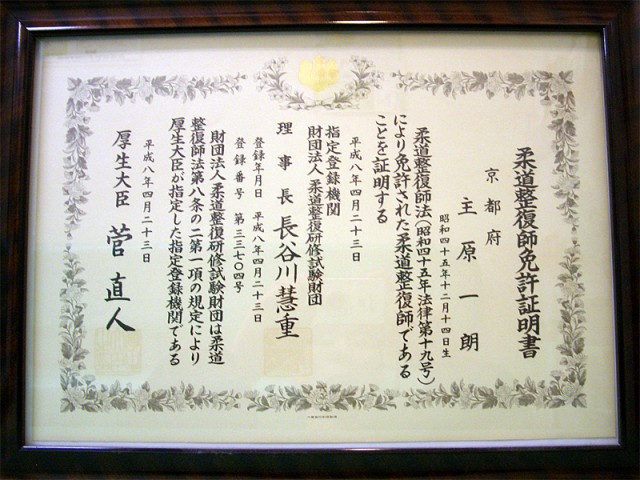 柔道整復師免許証明書
京都府
主原一朗
昭和四十五年十二月十四日生
柔道整復師法（昭和四十五年法律第十九号）
により免許された柔道整復師である
ことを証明する
平成八年四月二十三日
指定登録機関
財団法人 柔道整復研修試験財団
理事長 長谷川慧重
登録年月日 平成八年四月二十三日
登録番号 第三三七〇四号
財団法人柔道整復研修試験財団は柔道
整復師法第八条の二第一項の規定により
厚生大臣が指定した指定登録機関である
平成八年四月二十三日
厚生大臣 菅直人